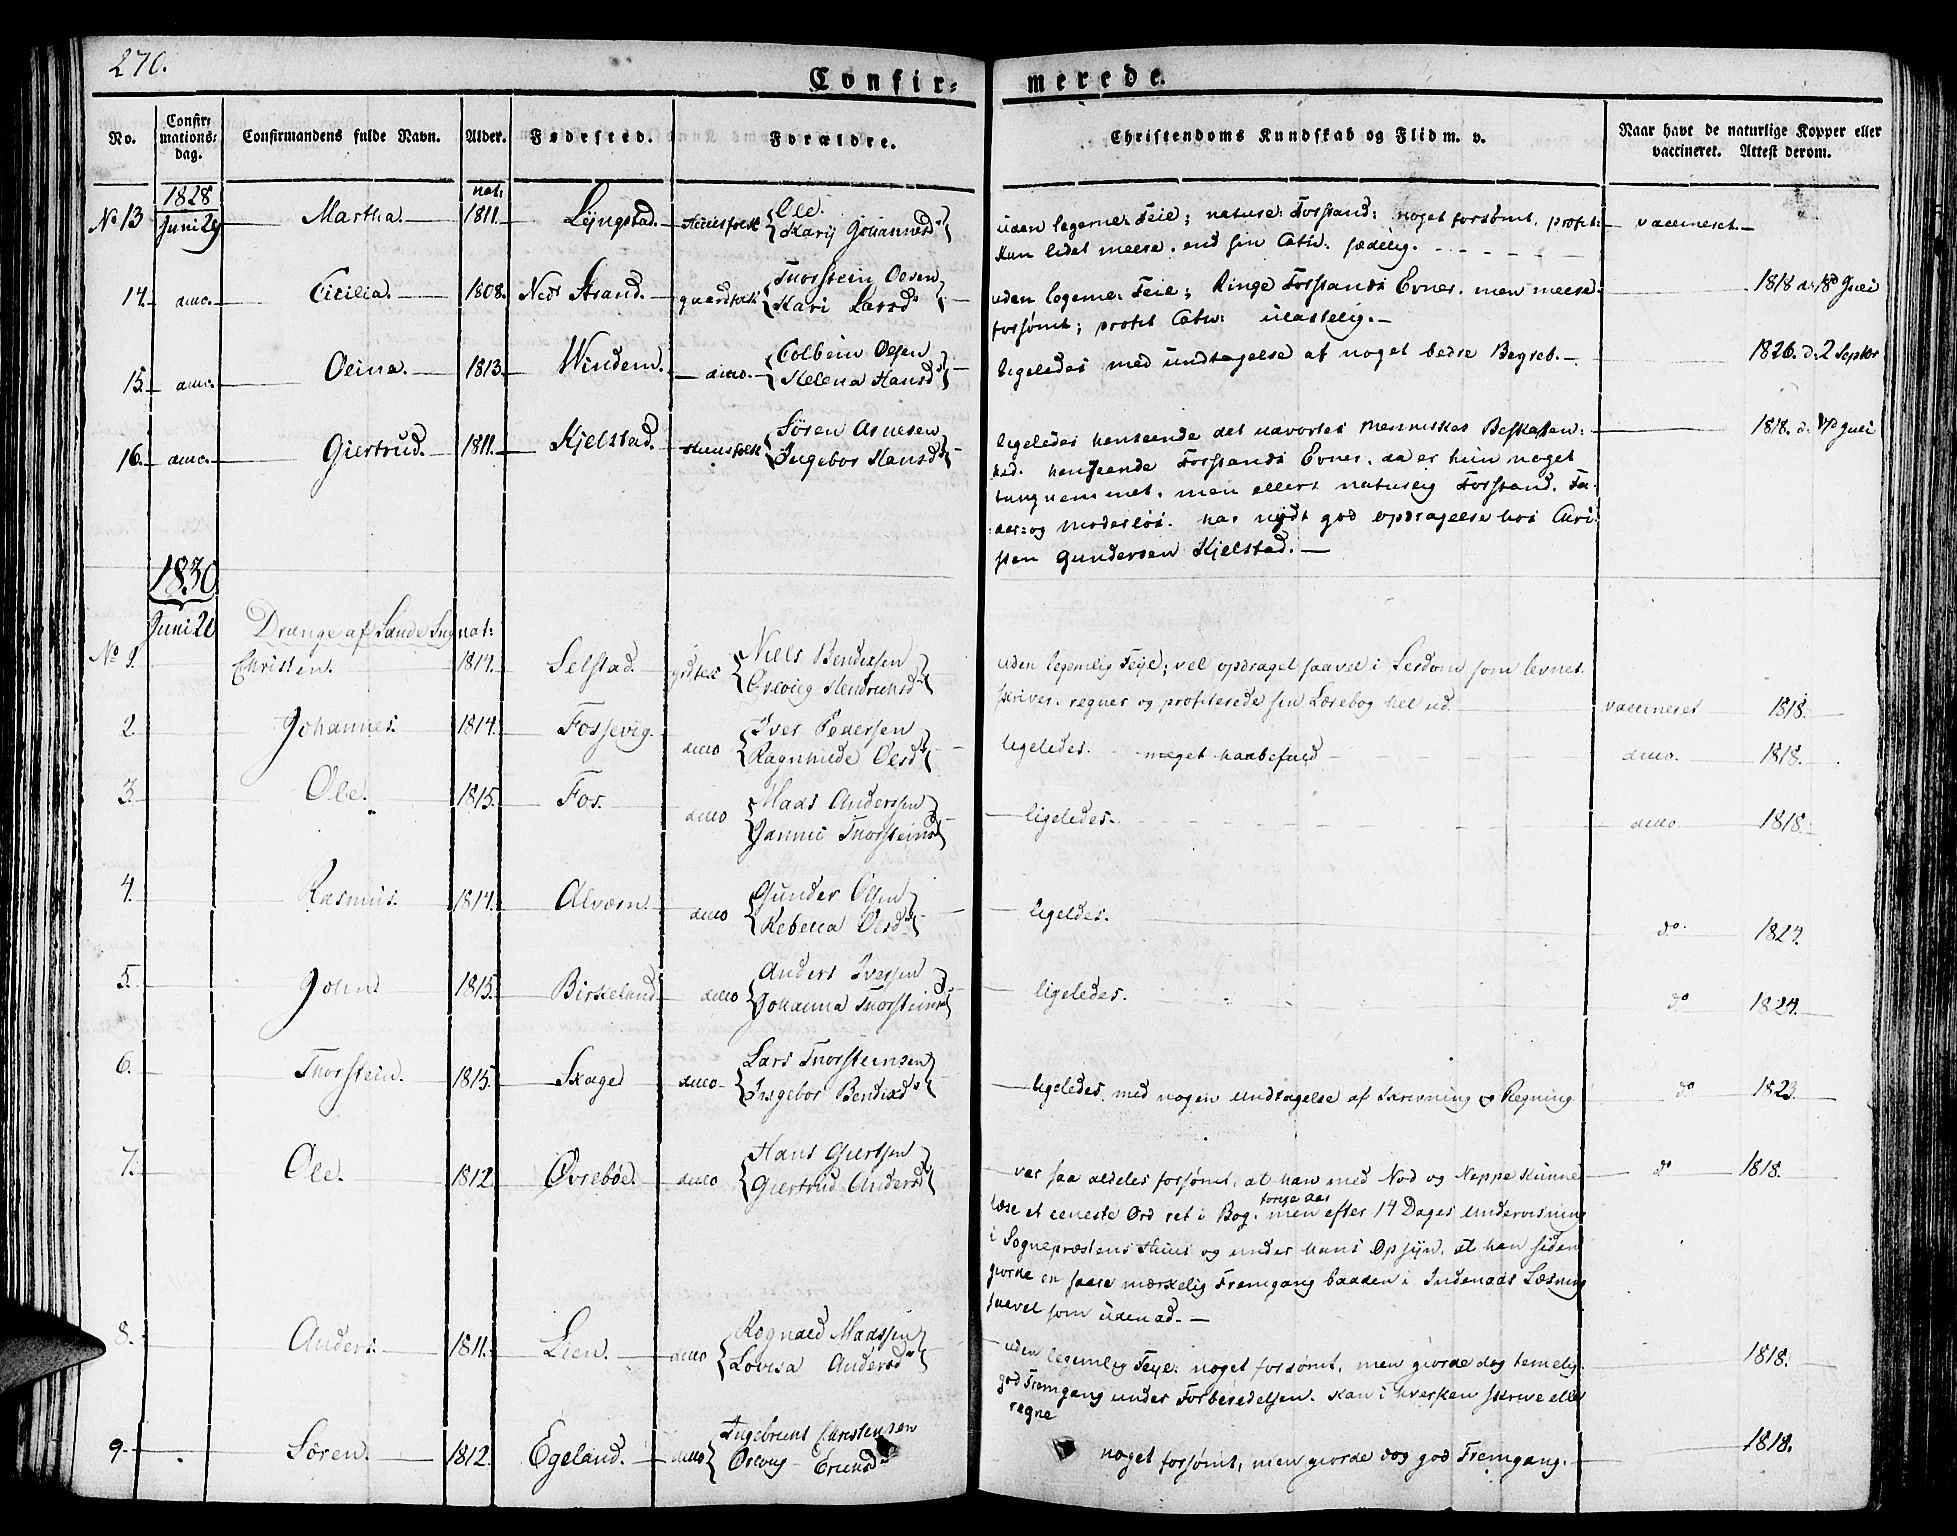 270.
Confir= merede.
No. Confir= mations= dag. Confirmandens fulde Navn. Alder. Fødested. Forældre. Christendoms Kundskab og Flid m. v. Naar havt de naturlige Kopper eller vaccineret. Attest derom.
1828 nat:
No 13 Juni 29 Martha. 1811. Lyngstad. Huusfolk Ole. Karij Johannesd. uden legemlig Feil; naturl. Forstand; noget forsømt, profit: vaccineret.
kun lidet meere end sin Catec. sædelig.
14. dito. Cicilia. 1808. Nedr Strand. gaardfolk Thorstein Olsen Kari Larsd. uden legeml. Feil; Ringe Forstands Evner, men meere 1818 d. 18d Juli
forsømt; profit Catec: ulastelig.
15. dito. Oline. 1813. Windem. dito. Colbein Olsen Helena Hansd. ligeledes med undtagelse af noget bedre Begreb. 1826. d. 2 Septbr
16. dito. Giertrud. 1811. Kjelstad. Huusfolk Søren Arnesen Ingebor Hansd. ligeledes henseende det udvortes Menneskes Beskaffen: 1818. d. 17d Juli
hed. henseende Forstands Evner, da er hun noget
tungnemmet, men ellers naturlig Forstand. Fa=
der= og Moderløs. har nydt god opdragelse hos Chri=
sten Gundersen Kjelstad.
1830
Juni 20 Drænge af Sande Sogn nat:
No 1. Christen. 1814. Selstad. grdfolk Niels Bendixsen Oselvig Hendrichsd. uden legemlig Feyl; vel opdraget saavel i Lærdom som levnet
skriver, regner og profiterede sin Læsebog hel ud. vaccineret 1818.
2. Johannes. 1814. Fossevig. dito Iver Pedersen Ragnhilde Olsd. ligeledes. meget haabefuld dito. 1818.
3. Ole. 1815. Fos. dito Mads Anderssen Jannic Thorsteind. ligeledes. dito 1818.
4. Rasmus. 1814. Alværn. dito Gunder Olsen Rebecca Olsd. ligeldes. do. 1824.
5. John 1815. Birkeland dito Anders Iversen Johanna Thorsteind. ligeledes. do 1824.
6. Thorstein. 1815. Skage dito Lars Thorsteinsen Ingebor Bendixd. ligeledes, med nogen undtagelse af Skrivning og Regning do 1823.
7. Ole. 1812. Øvrebøe. dito Hans Giertsen Giertrud Andersd. var saa aldeles forsømt, at han med Nød og Neppe kunne do 1818.
læse et eeneste Ord ret i Bog. forige Aar men efter 14 Dages undervisning
i Sognepræstens Huus og under hans Opsyn, at han siden
giorde en saare mærkelig Fremgang baaden i Indenads Læsning
saavel som udenad.
8. Anders. 1811. Lien. dito Rognald Madssen Lovisa Andersd. uden legemlig Feyl. noget forsømt, men giorde dog temelig 1818.
god Fremgang under Forberedelsen. kan i hverken skrive eller
regne
9. Søren. 1812. Egeland. dito Ingebrient Christensen noget forsømt, men giorde dog god Fremgang. 1818.